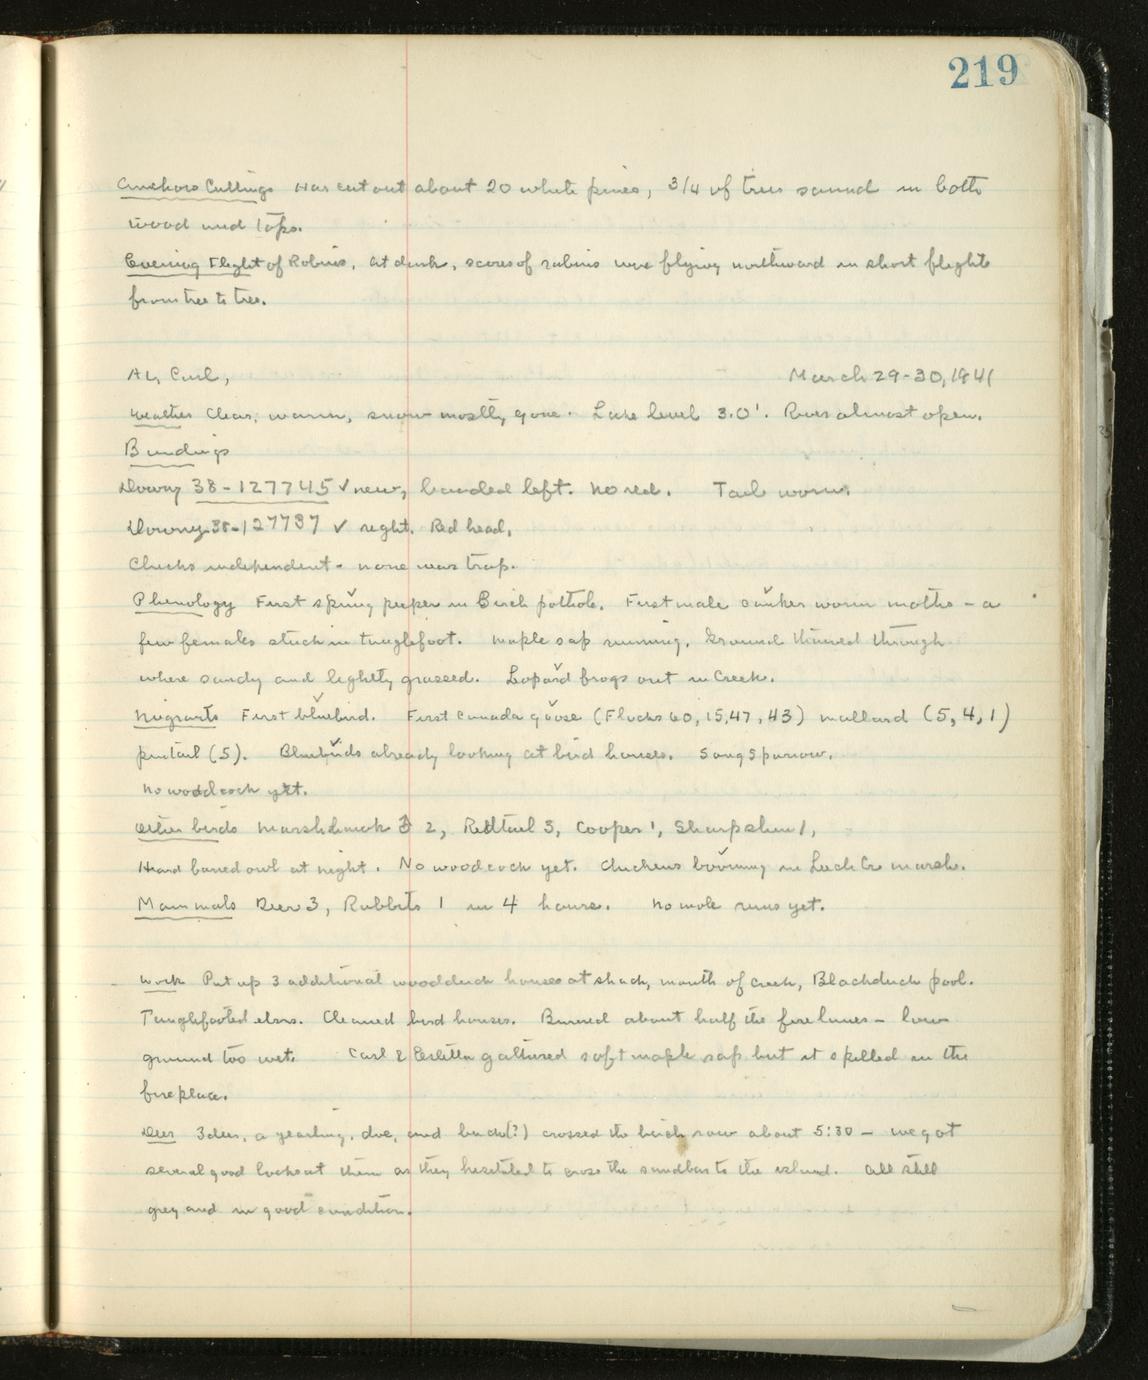 219
Anchors Cuttings Has cut out about 20 white pines, 3/4 of trees sound in both
wood and tops.
Evening Flight of Robins, At dusk, scores of robins were flying northward in short flights
from tree to tree.
AL, Carl, March 29-30, 1941
Weather Clear, warm, snow mostly gone. Lake level 3.0'. River almost open.
Bandings
Downy 38-127745 ✓ new, banded left. No red. Tail worn.
Downy 38-127737 ✓ right. Red head.
Chicks independent - none near trap.
Phenology First spring peeper in Birch pothole. First male canker worm moths - a
few females stuck in tanglefoot. Maple sap running. Ground thawed through
where sandy and lightly grassed. Lepard frogs out in Creek.
Migrants First bluebird. First Canada goose (Flocks 60, 15, 47, 43) mallard (5, 4, 1)
pintail (5). Bluebirds already looking at bird houses. Song Sparrow.
No woodcock yet.
Other birds Marshhawk 2, Redtail 3, Cooper 1, Sharpshin 1,
Heard barred owl at night. No woodcock yet. Chickens booming in Leech Cr marsh.
Mammals Deer 3, Rabbits 1 in 4 hours. No mole runs yet.
Work Put up 3 additional woodduck houses at shack, mouth of creek, Blackduck pool.
Tanglefooted elms. Cleaned bird houses. Burned about half the fire lanes - low
ground too wet. Carl & Estella gathered soft maple sap but it spilled in the
fireplace.
Deer 3 deer, a yearling, doe, and buck(?) crossed the birch row about 5:30 - we got
several good looks at them as they hesitated to cross the sandbar to the island. All still
grey and in good condition.